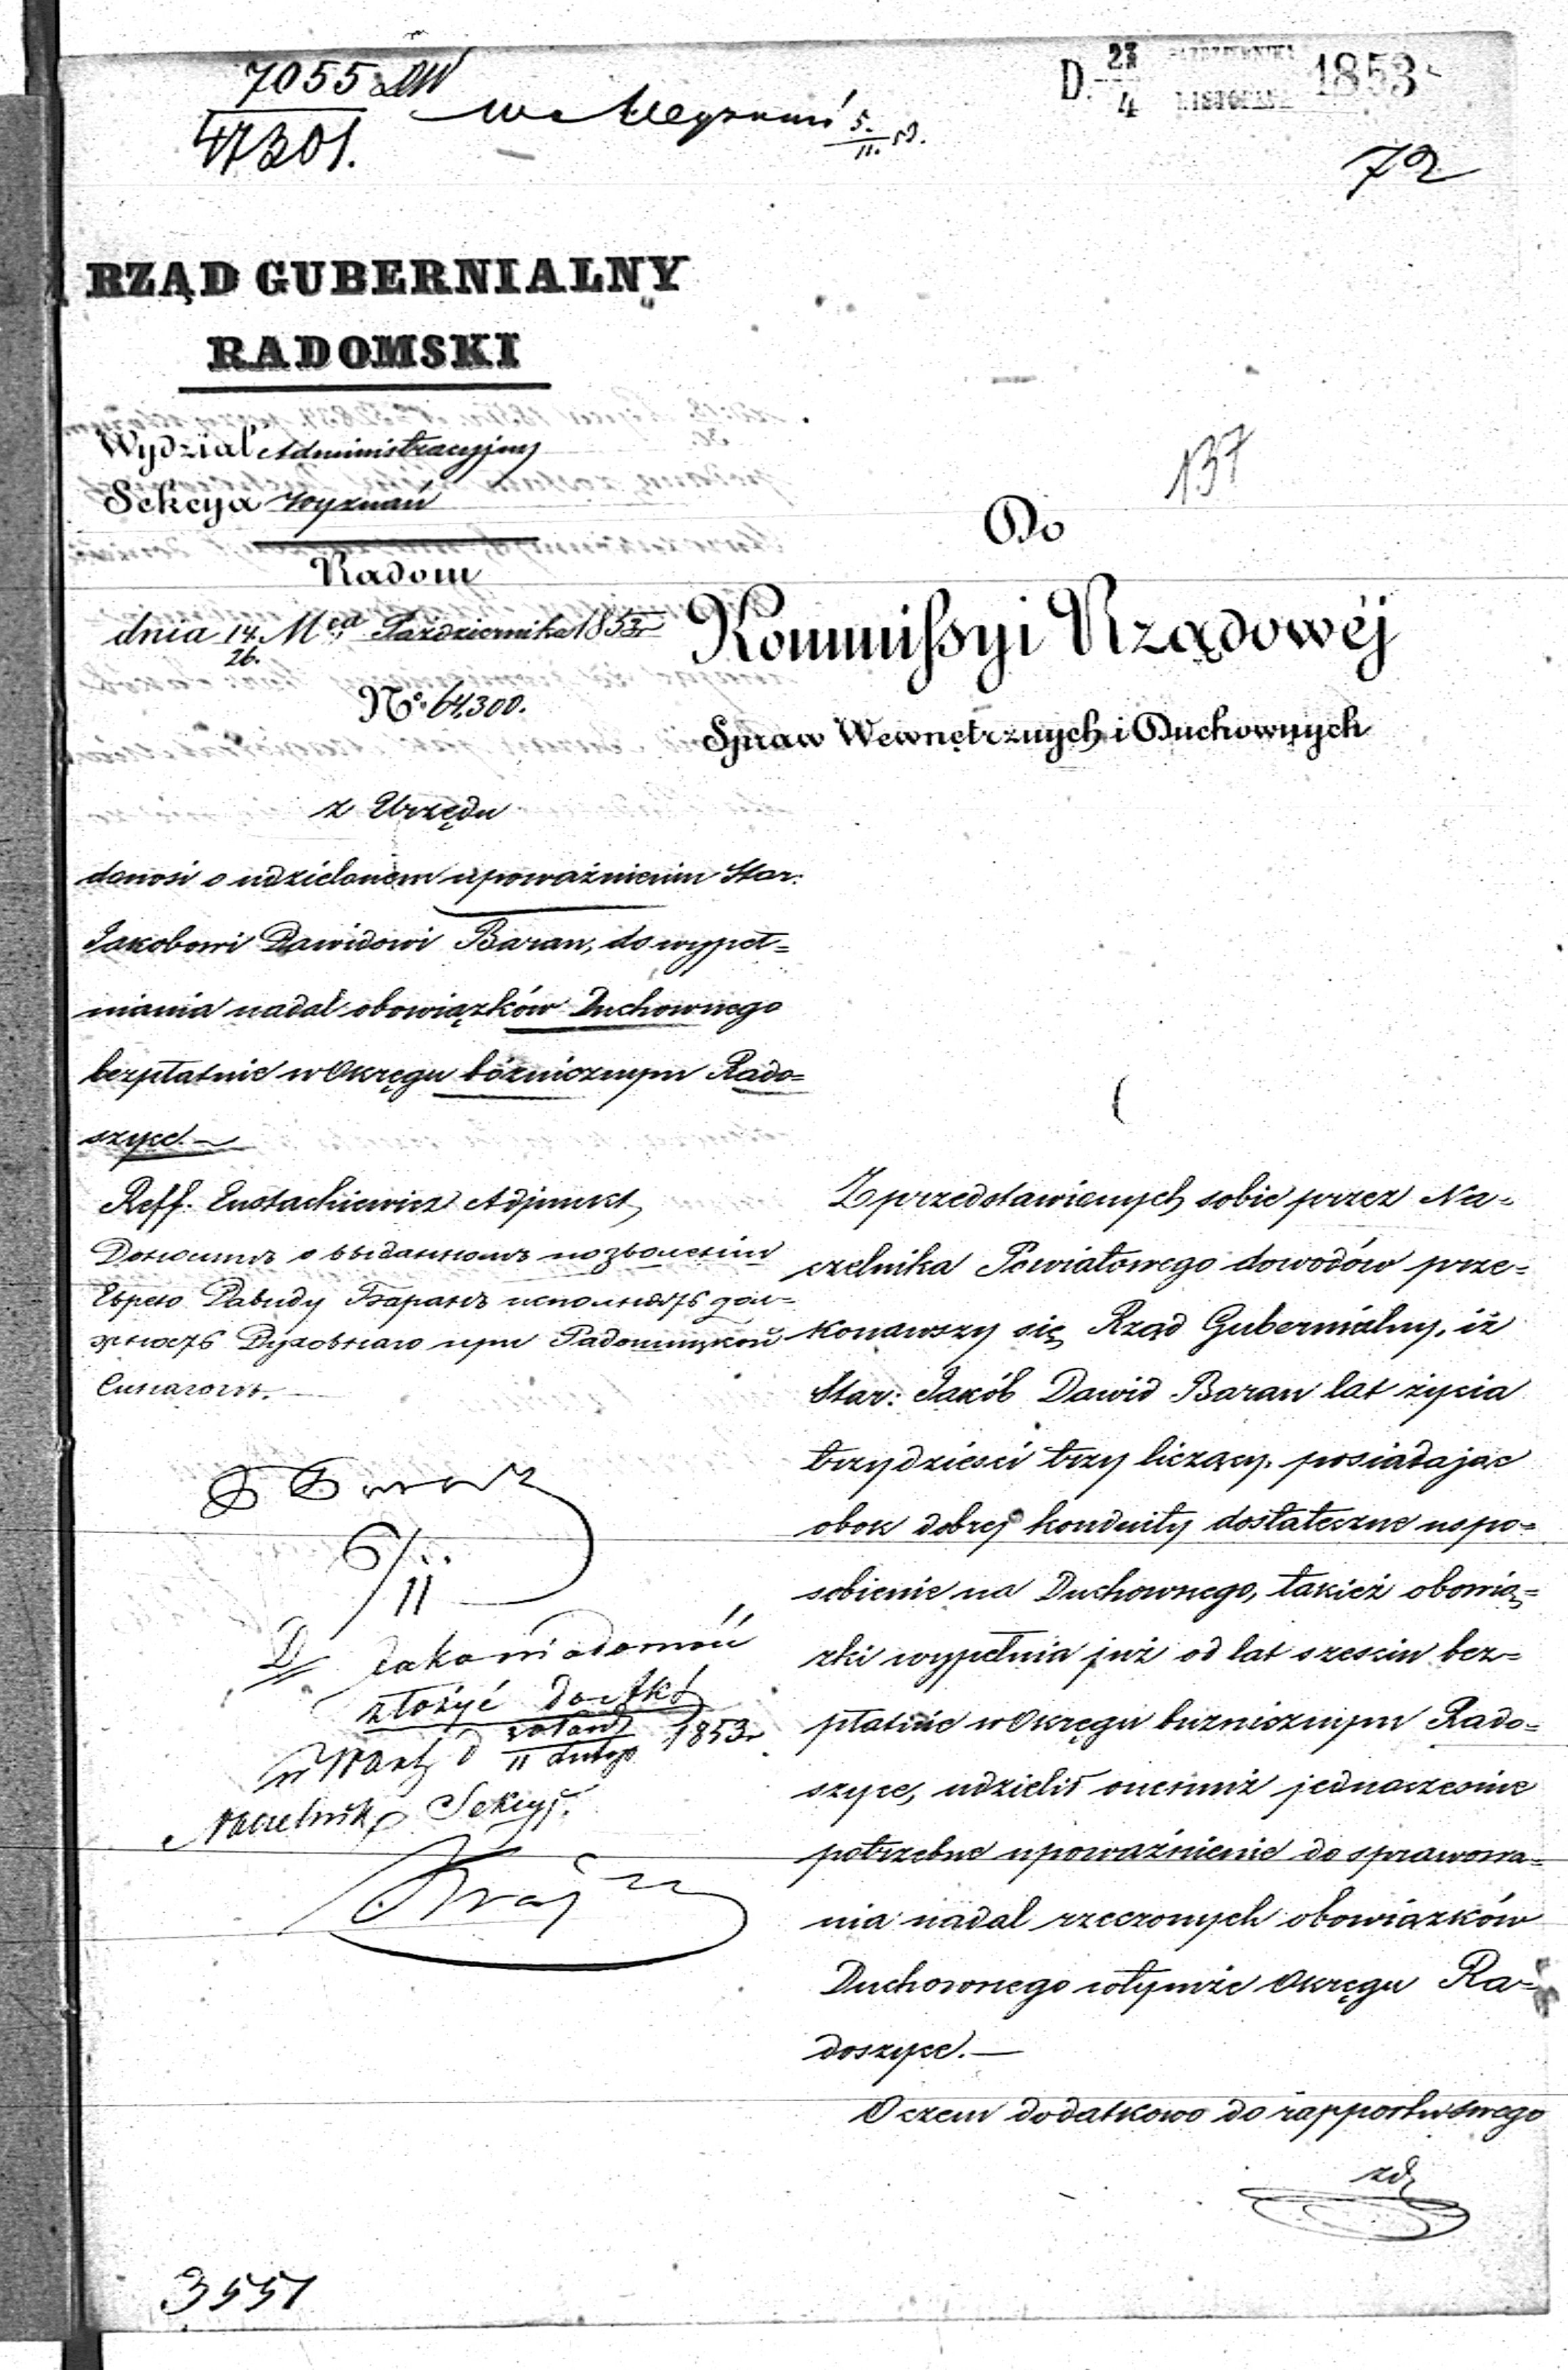 7055 DW
47301.
we Wyznań 5./11. D.
D. 23/4 PAZDZIERNIKA LISTOPADA 1853
72
RZĄD GUBERNIALNY
RADOMSKI
Wydział Administracyjny
Sekcya Wyznań
137
Radom
dnia 14/26. Mca Października 1853r
No. 64,300.
Do
Kommissyi Rządowéj
Spraw Wewnętrznych i Duchownych
z Urzędu
donosi o udzielonem upoważnieniu Star:
Jakobowi Dawidowi Baran, do wypeł=
niania nadal obowiązków Duchownego
bezpłatnie w Okręgu bóżnicznym Rado=
szyce.
Reff. Eustachiewicz Adjunkt
Доноситъ о выданномъ позволенiи
Еврею Давиду Баранъ исполнять дол=
жность Духовнаго при Радошицкой
Синагогѣ.
6/11
D jako wiadomość
złożyć do Akt
w Warsz d 11 1853r
Naczelnik Sekcyi.
Z przedstawionych sobie przez Na=
czelnika Powiatowego dowodów prze=
konawszy się Rząd Gubernialny, iż
Star: Jakób Dawid Baran lat życia
trzydzieści trzy liczący, posiadając
obok dobrej konduity dostateczne uspo=
sobienie na Duchownego, takież obowią=
zki wypełnia już od lat sześciu bez=
płatnie w Okręgu bużnicznym Rado=
szyce, udzielił onemuż jednocześnie
potrzebne upoważnienie do sprawowa=
nia nadal rzeczonych obowiązków
Duchownego w tymże Okręgu Ra=
doszyce.
O czem dodatkowo do rapportu swego
zd
3551